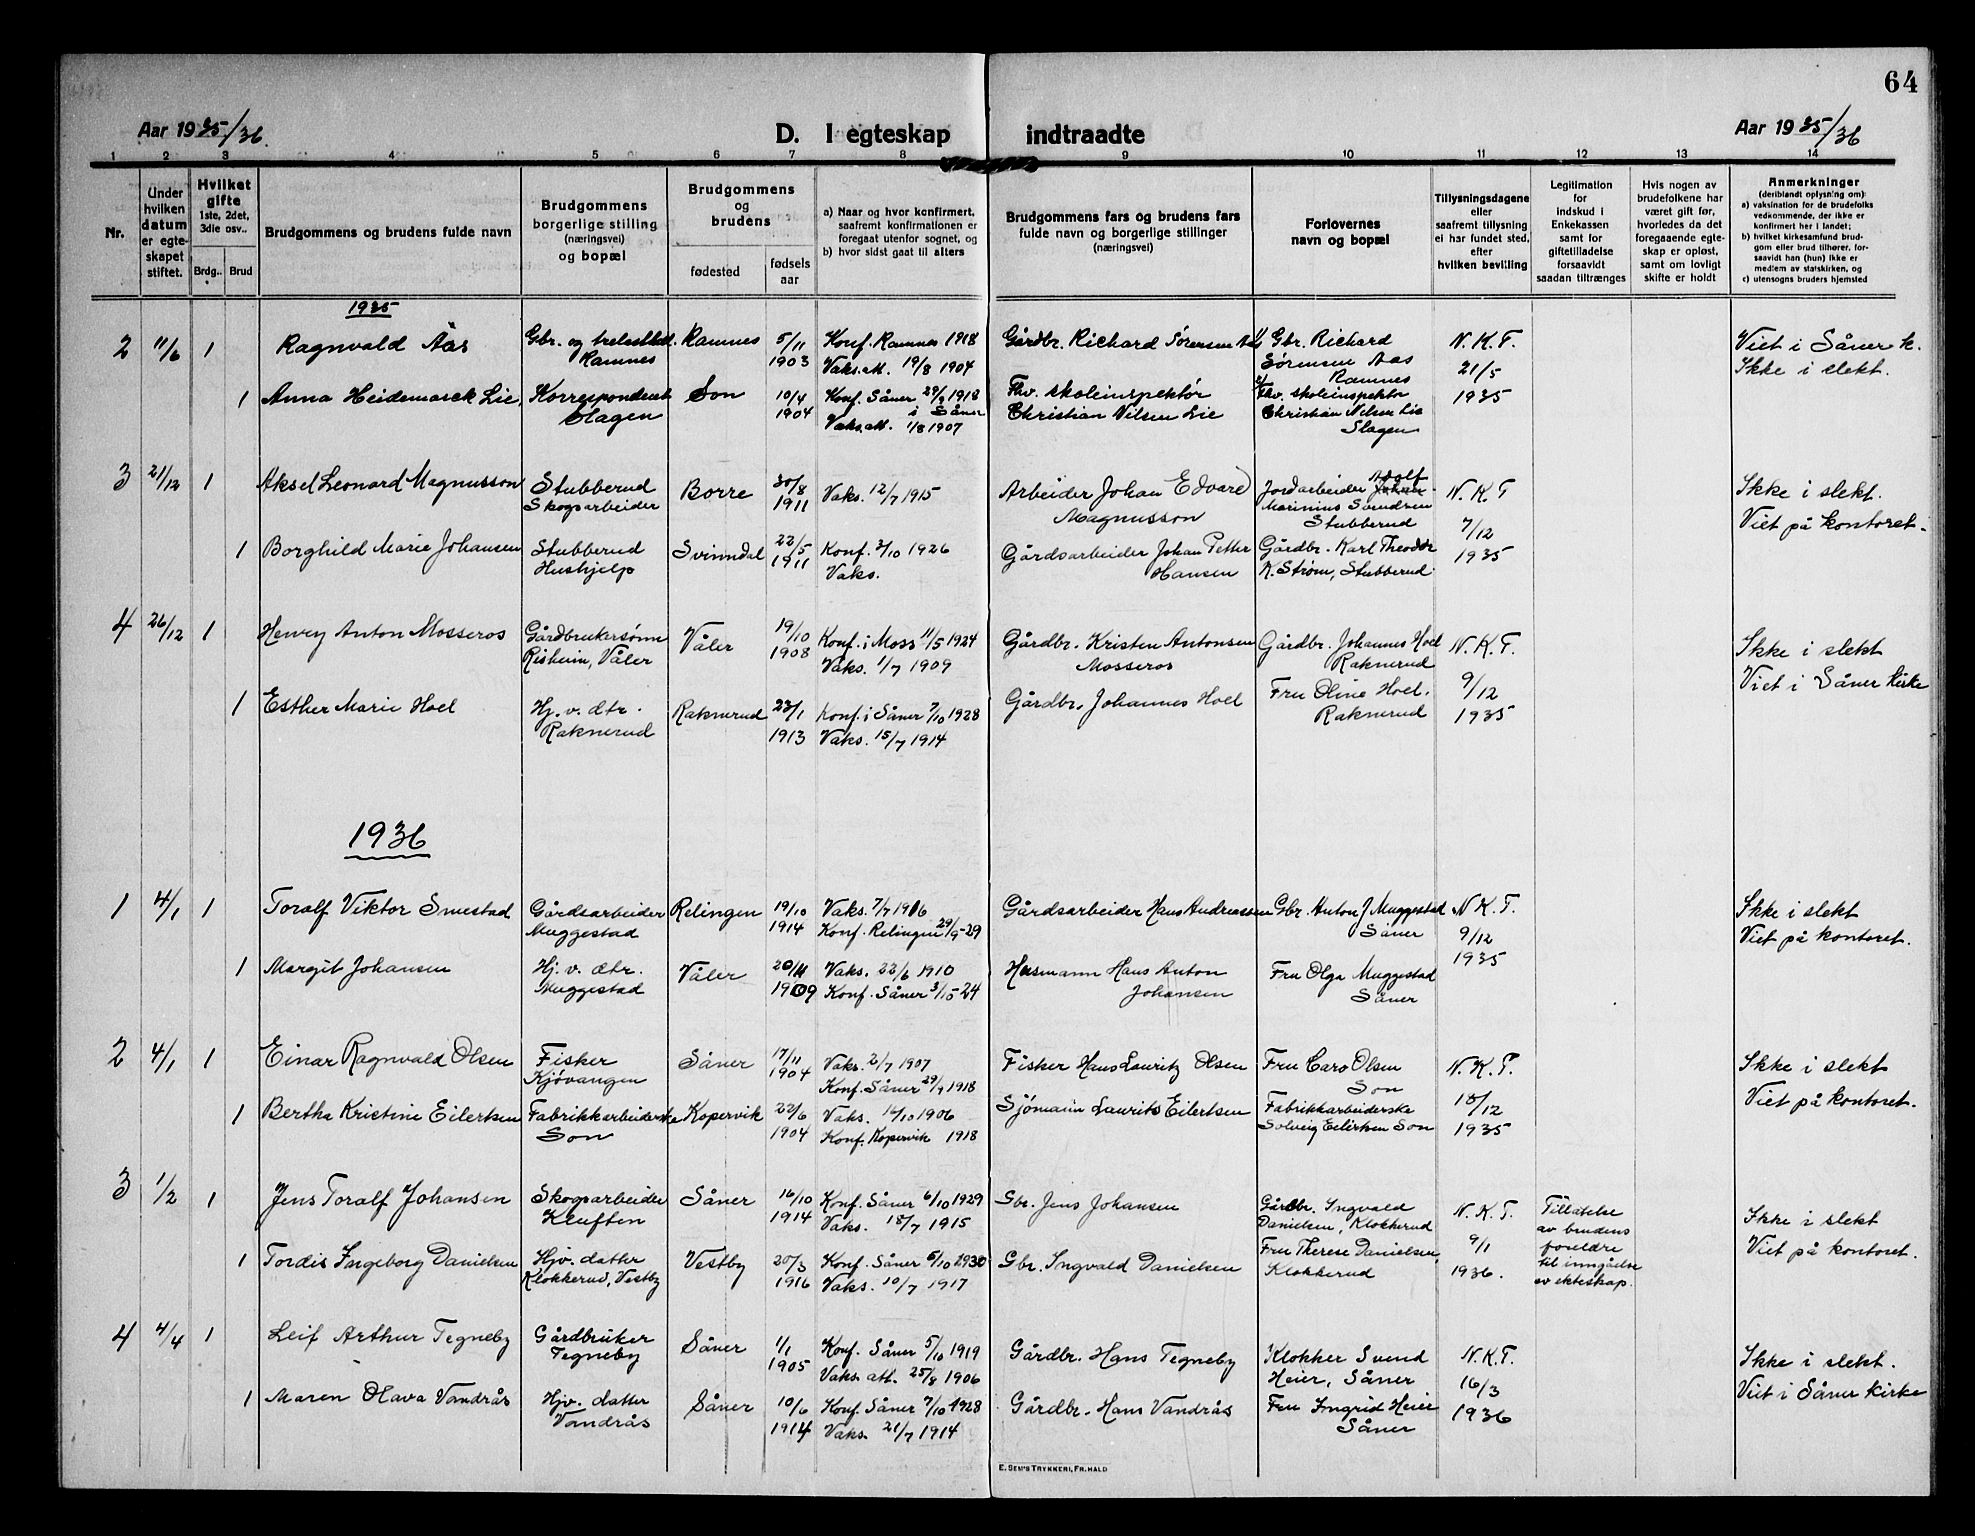 64
Aar 1935/36.
D. I egteskap indtraadte
Aar 1935/36
1 2 3 4 5 6 7 8 9 10 11 12 13 14
Nr.
Under hvilken datum er egteskapet stiftet.
Hvilket gifte
1ste, 2det, 3die osv..
Brdg.. Brud
Brudgommens og brudens fulde navn
Brudgommens borgerlige stilling (næringsvei) og bopæl
Brudgommens og brudens
fødested
fødsels aar
a) Naar og hvor konfirmert, saafremt konfirmationen er foregaat utenfor sognet, og
b) hvor sidst gaat til alters
Brudgommens fars og brudens fars fulde navn og borgerlige stillinger (næringsvei)
Forlovernes navn og bopæl
Tillysningsdagene eller saafremt tillysning ei har fundet sted, efter hvilken bevilling
Legitimation for indskud i Enkekassen samt for giftetilladelse forsaavidt saadan tiltrænges
Hvis nogen av brudefolkene har været gift før, hvorledes da det foregaaende egteskap er opløst, samt om lovligt skifte er holdt
Anmerkninger
(deriblandt oplysning om):
a) vaksination for de brudefolks vedkommende, der ikke er konfirmert her i landet;
b) hvilket kirkesamfund brudgom eller brud tilhører, forsaavidt han (hun) ikke er medlem av statskirken, og
c) utensogns bruders hjemsted
1935
2 11/6 1 Ragnvald Aas
Gbr. og trelasthdl.
Ramnes
Ramnes
5/11
1903
Konf. Ramnes 1918
Vaks. att. 19/8 1904
Gårdbr. Richard Sörensen Aas
1/ Gbr. Richard
Sörensen Aas
Ramnes
N.K.T.
21/5
1935
Viet i Såner k.
Ikke i slekt.
1 Anna Heidemarck Lie,
Korrespondent
Slagen
Son
10/4
1904
Konf. Såner 29/9 1918
i Såner
Vaks. att. 1/8 1907
Fhv. skoleinspektör
Christian Nilsen Lie
2/ Fhv. skoleinspektör
Christian Nilsen Lie
Slagen
3 21/12 1 Aksel Leonard Magnusson
Stubberud
Skogsarbeider
Borre
30/8
1911
Vaks. 12/7 1915
Arbeider Johan Edvard
Magnusson
Adolf
Jordarbeider Johan
Marinius Svendsen
Stubberud
N.K.T
7/12
1935
Ikke i slekt.
Viet på kontoret.
1 Borghild Marie Johansen
Stubberud
Hushjelp
Svinndal
22/5
1911
Konf. 3/10 1926
Vaks.
Gårdsarbeider Johan Petter
Hansen
Gårdbr. Karl Theodor
K. Ström, Stubberud.
4 26/12 1 Henry Anton Mosseros
Gårdbrukersönn
Risheim, Våler
Våler
19/10
1908
Konf. i Moss 11/5 1924
Vaks. 1/7 1909
Gårdbr. Kristen Antonsen
Mosseros
Gårdbr. Johannes Hoel
Raknerud
N.K.T.
9/12
1935
Ikke i slekt
Viet i Såner kirke
1 Esther Marie Hoel
Hj. v. dtr.
Raknerud
Raknerud
23/1
1913
Konf. i Såner 7/10 1928
Vaks. 15/7 1914
Gårdbr. Johannes Hoel
Fru Oline Hoel.
Raknerud
1936
1 4/1 1 Toralf Viktor Smestad
Gårdsarbeider
Muggestad
Relingen
19/10
1914
Vaks. 7/7 1916
Konf. Relingen 29/9-29
Gårdsarbeider Hans Andreassen
Gbr. Anton J Muggestad
Såner
N.K.T.
9/12
1935
Ikke i slekt
Viet på kontoret.
1 Margit Johansen
Hj. v. dtr.
Muggestad
Våler
20/11
1909
Vaks. 22/6 1910
Konf. Såner 3/10-24
Husmann Hans Anton
Johansen
Fru Olga Muggestad
Såner
2 4/1 1 Einar Ragnvald Olsen
Fisker
Kjövangen
Såner
17/11
1904
Vaks. 2/7 1907
Konf. Såner 29/9 1918
Fisker Hans Lauritz Olsen
Fru Caro Olsen
Son
N.K.T.
18/12
1935
Ikke i slekt
Viet på kontoret.
1 Bertha Kristine Eilertsen
Fabrikkarbeiderske
Son
Kopervik
22/6
1904
Vaks. 16/10 1906
Konf. Kopervik 1918
Sjömann Laurits Eilertsen
Fabrikkarbeiderske
Solveig Eilertsen Son
3 1/2 1 Jens Toralf Johansen
Skogsarbeider
Kluften
Såner
16/10
1914
Konf. Såner 6/10 1929
Vaks. 18/7 1915
Gbr. Jens Johansen
Gårdbr. Ingvald
Danielsen, Klokkerud
N.K.T.
9/1
1936.
Tillatelse
av brudens
foreldre
til inngåelse
av ekteskap.
Ikke i slekt
Viet på kontoret.
1 Tordis Ingeborg Danielsen
Hjv. datter
Klokkerud, Vestby
Vestby
20/3
1916
Konf. Såner 5/10 1930
Vaks. 10/7 1917
Gbr. Ingvald Danielsen
Fru Therese Danielsen,
Klokkerud
4 4/4 1 Leif Arthur Tegneby
Gårdbruker
Tegneby
Såner
1/1
1905
Konf. Såner 5/10 1919
Vaks. att. 25/8 1906
Gårdbr. Hans Tegneby
Klokker Svend
Heier, Såner
N.K.T.
16/3
1936
Ikke i slekt.
Viet i Såner kirke
1 Maren Olava Vandrås
Hjv. datter
Vandrås
Såner
10/6
1914
Konf. Såner 7/10 1928
Vaks. 21/7 1914
Gårdbr. Hans Vandrås
Fru Ingrid Heier
Såner
E. SEM'S TRYKKERI, FR.HALD